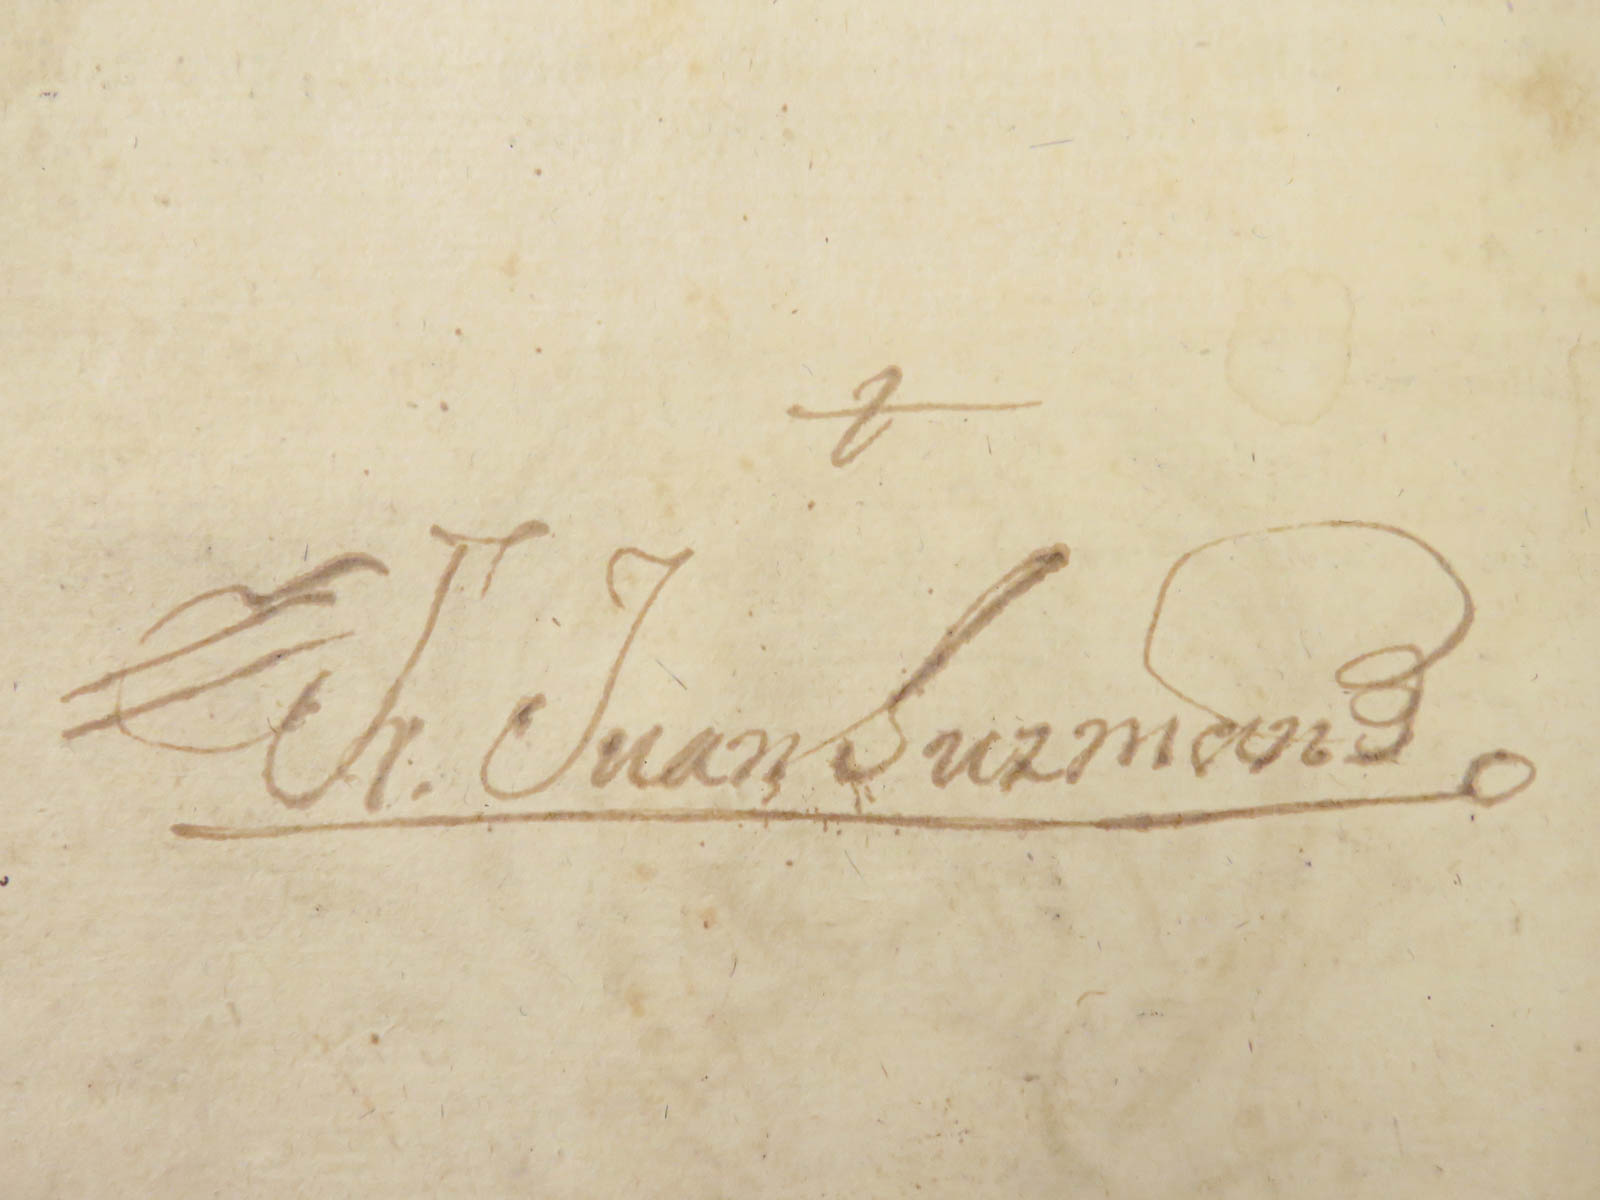 +
Fr. Juan Guzman